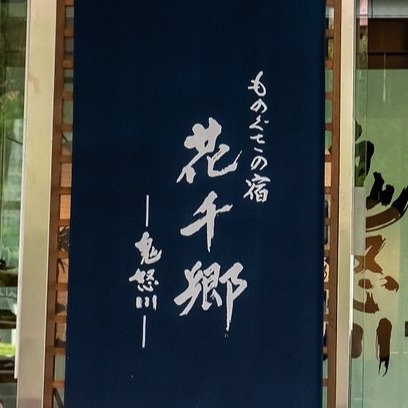 ものぐさの宿
花千郷
―鬼怒川―
鬼怒川